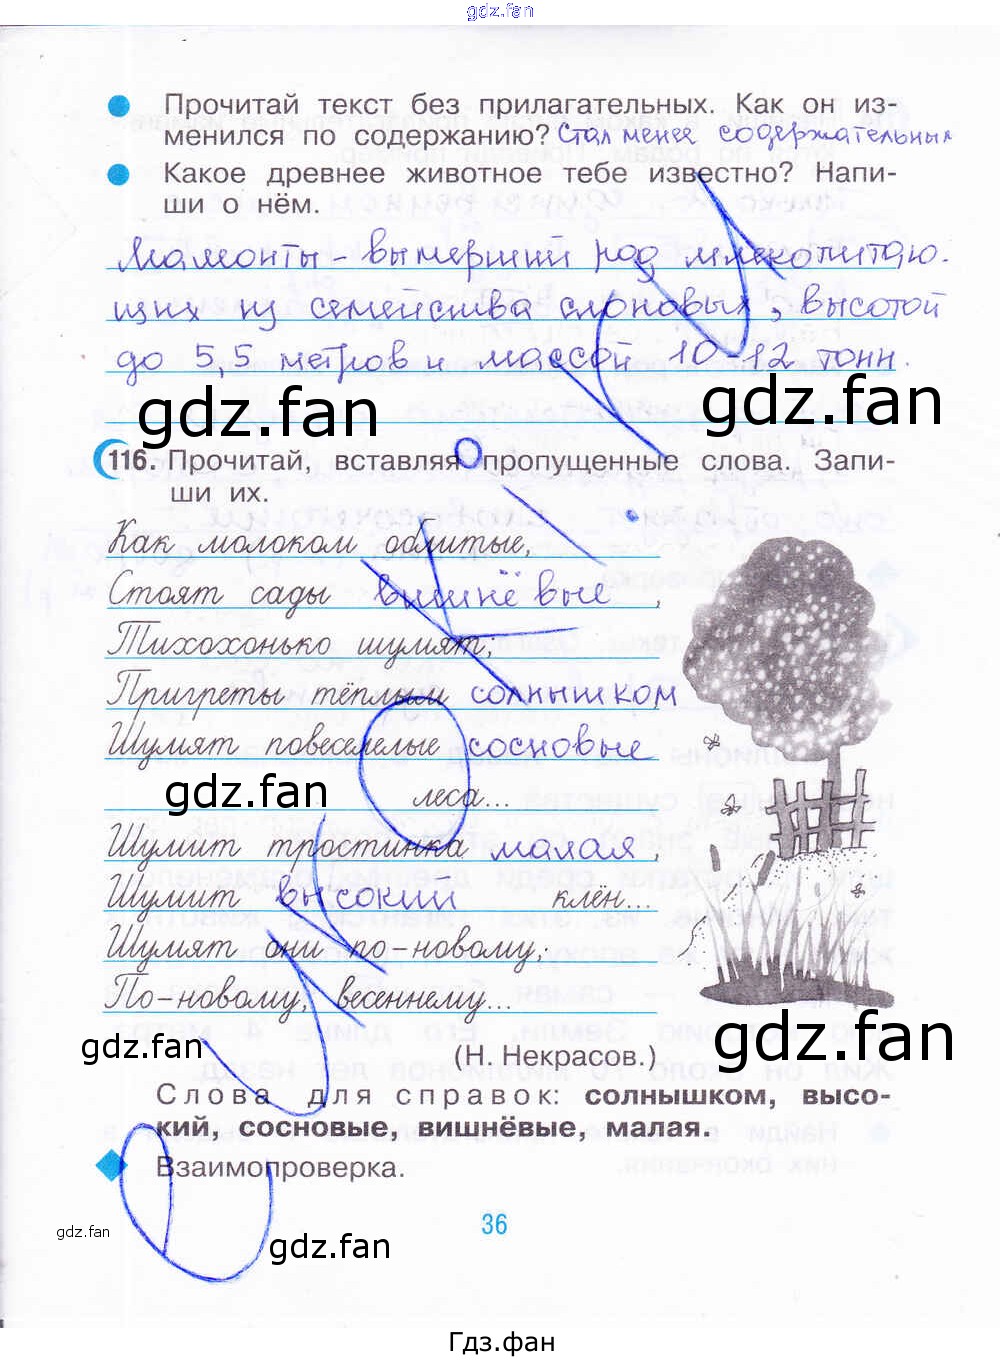 gdz.fan
Прочитай текст без прилагательных. Как он из-
менился по содержанию? Стал менее содержательным
Какое древнее животное тебе известно? Напи-
ши о нём.
Мамонты – вымерший род млекопитаю-
щих из семейства слоновых, высотой
до 5,5 метров и массой 10-12 тонн.
gdz.fan gdz.fan
116. Прочитай, вставляя пропущенные слова. Запи-
ши их.
Как молоком облитые,
Стоят сады вишнёвые ,
Тихохонько шумят;
Пригреты тёплым солнышком
Шумят повеселелые сосновые
gdz.fan леса...
Шумит тростинка малая ,
Шумит высокий клён...
Шумят они по-новому,
По-новому, весеннему...
gdz.fan gdz.fan
(Н. Некрасов.)
Слова для справок: солнышком, высо-
кий, сосновые, вишнёвые, малая.
Взаимопроверка.
36
gdz.fan
gdz.fan
Гдз.фан